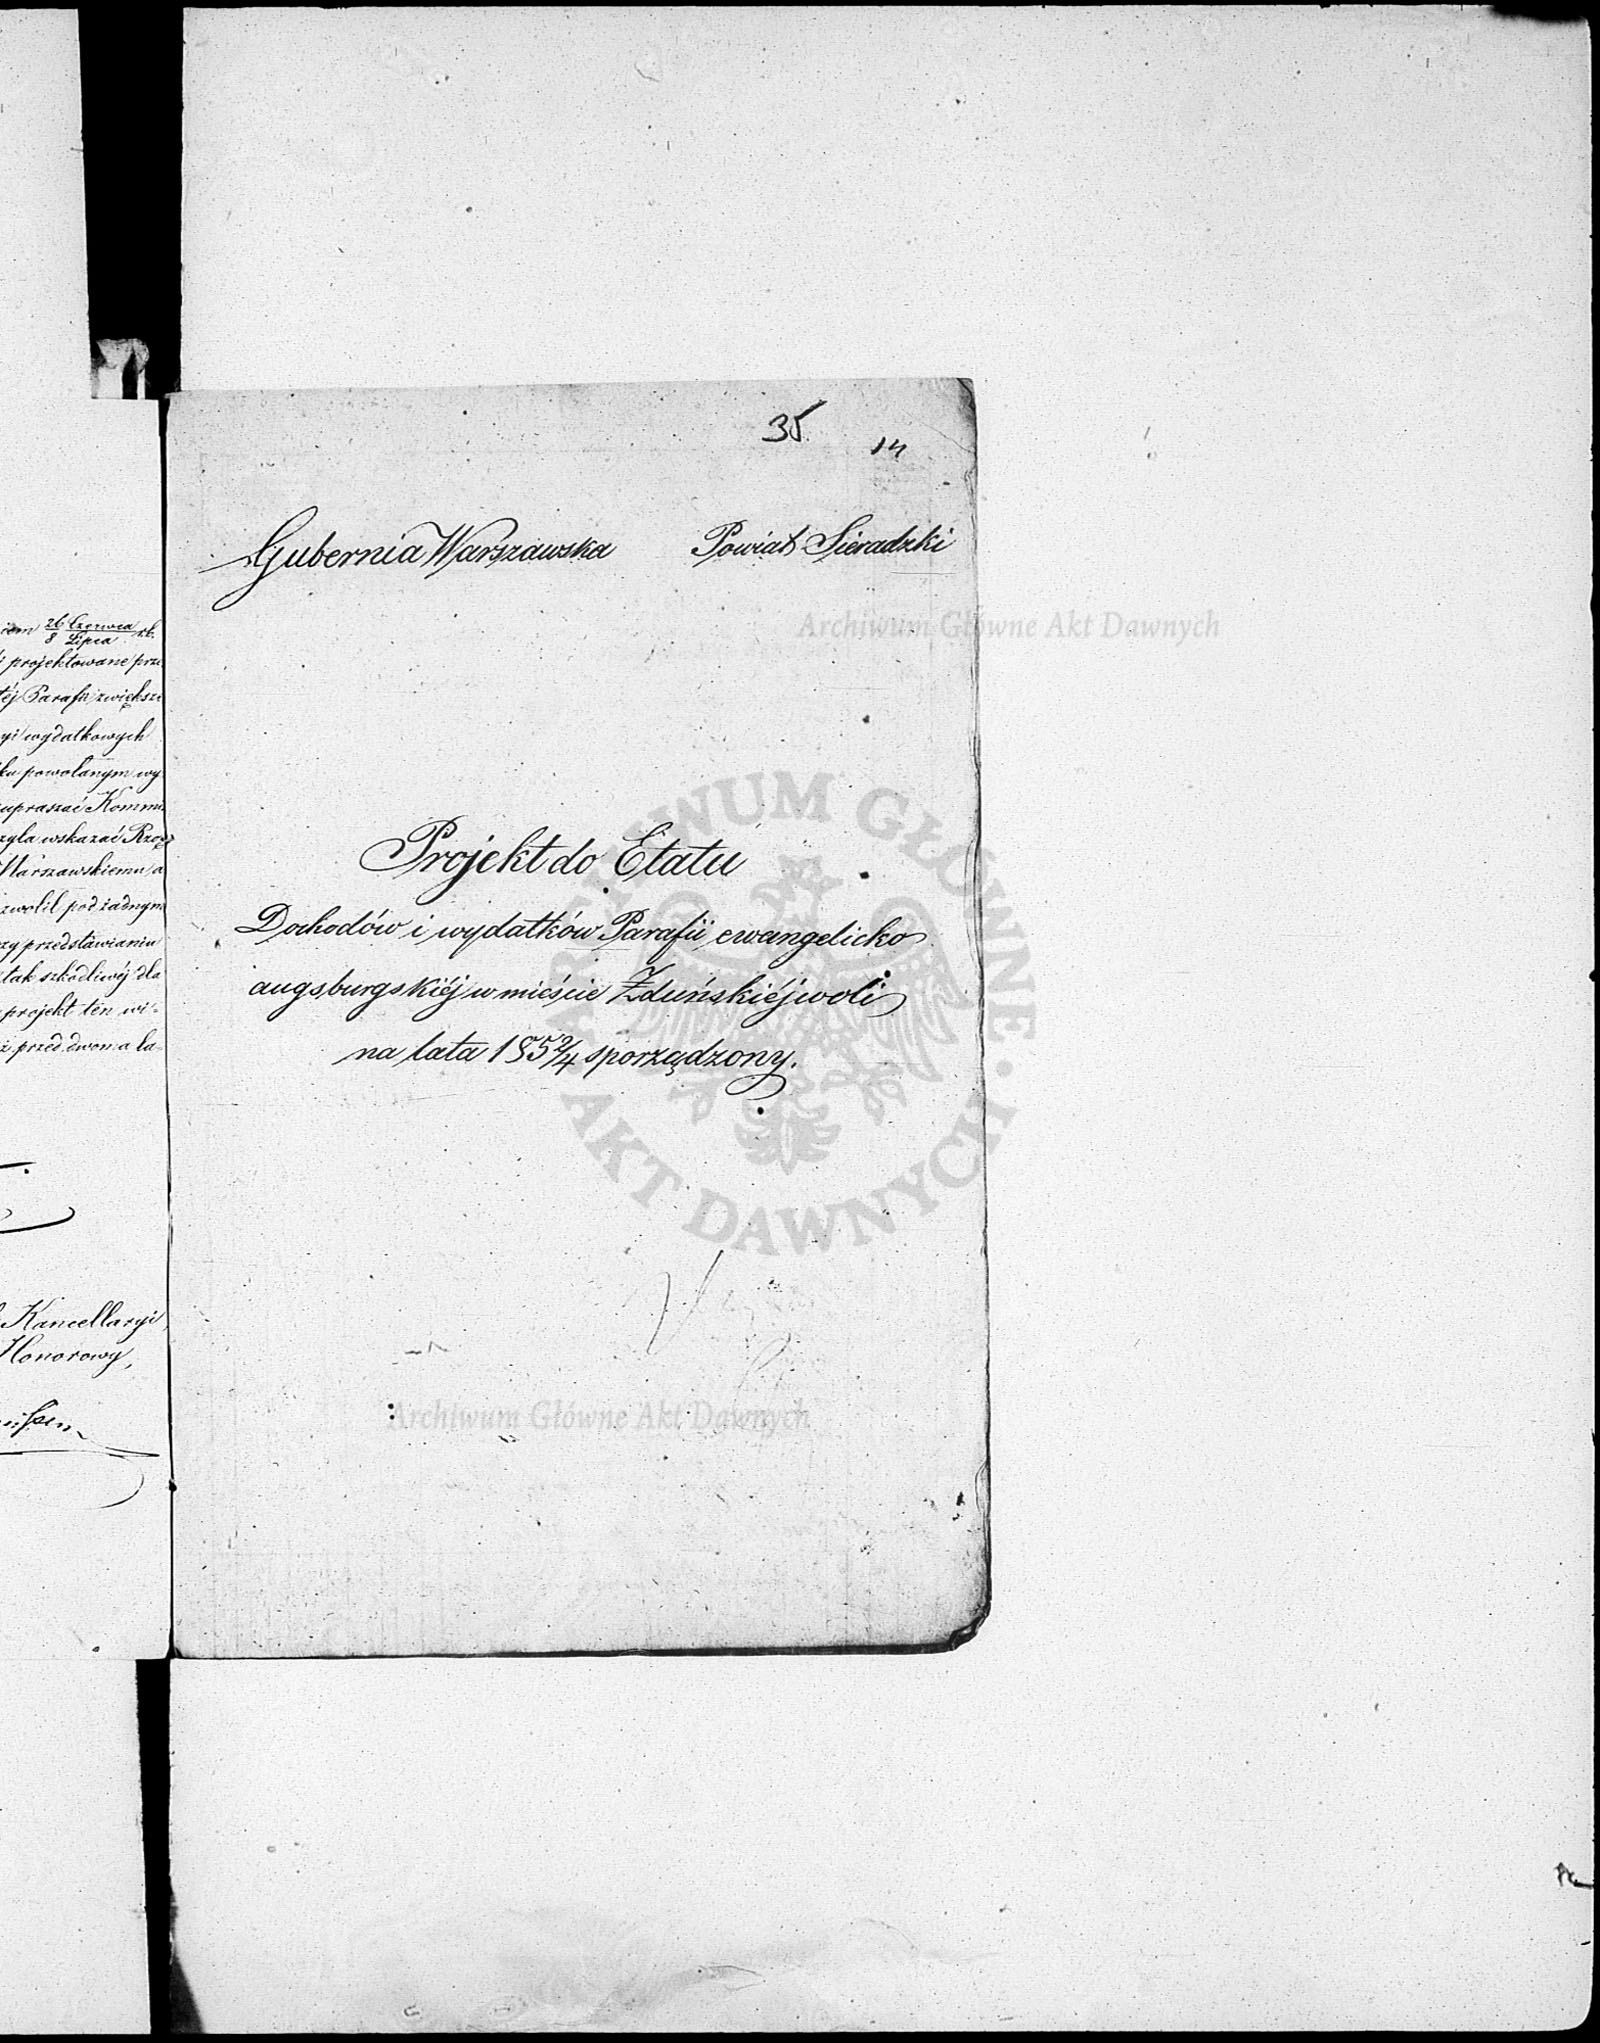 iem 26 Czerwca / 8 Lipca r.b.
projektowane prze
téj Parafii zwiększe
yi wydatkowych
ku powołanym wy
upraszać Kommi
zyła wskazać Rzą
Warszawskiemu a
zwolił pod żadnym
zy przedstawianiu
tak szkodliwéj dla
projekt ten wi-
ż przed dwoma la-
Kancellaryi
Honorowy,
35
14
Gubernia Warszawska Powiat Sieradzki
Archiwum Główne Akt Dawnych
Projekt do Etatu
Dochodów i wydatków Parafii ewangelicko
augsburgskiéj w mieście Zduńskiéjwoli
na lata 185 2/4 sporządzony.
ARCHIWUM GŁÓWNE AKT DAWNYCH
Archiwum Główne Akt Dawnych